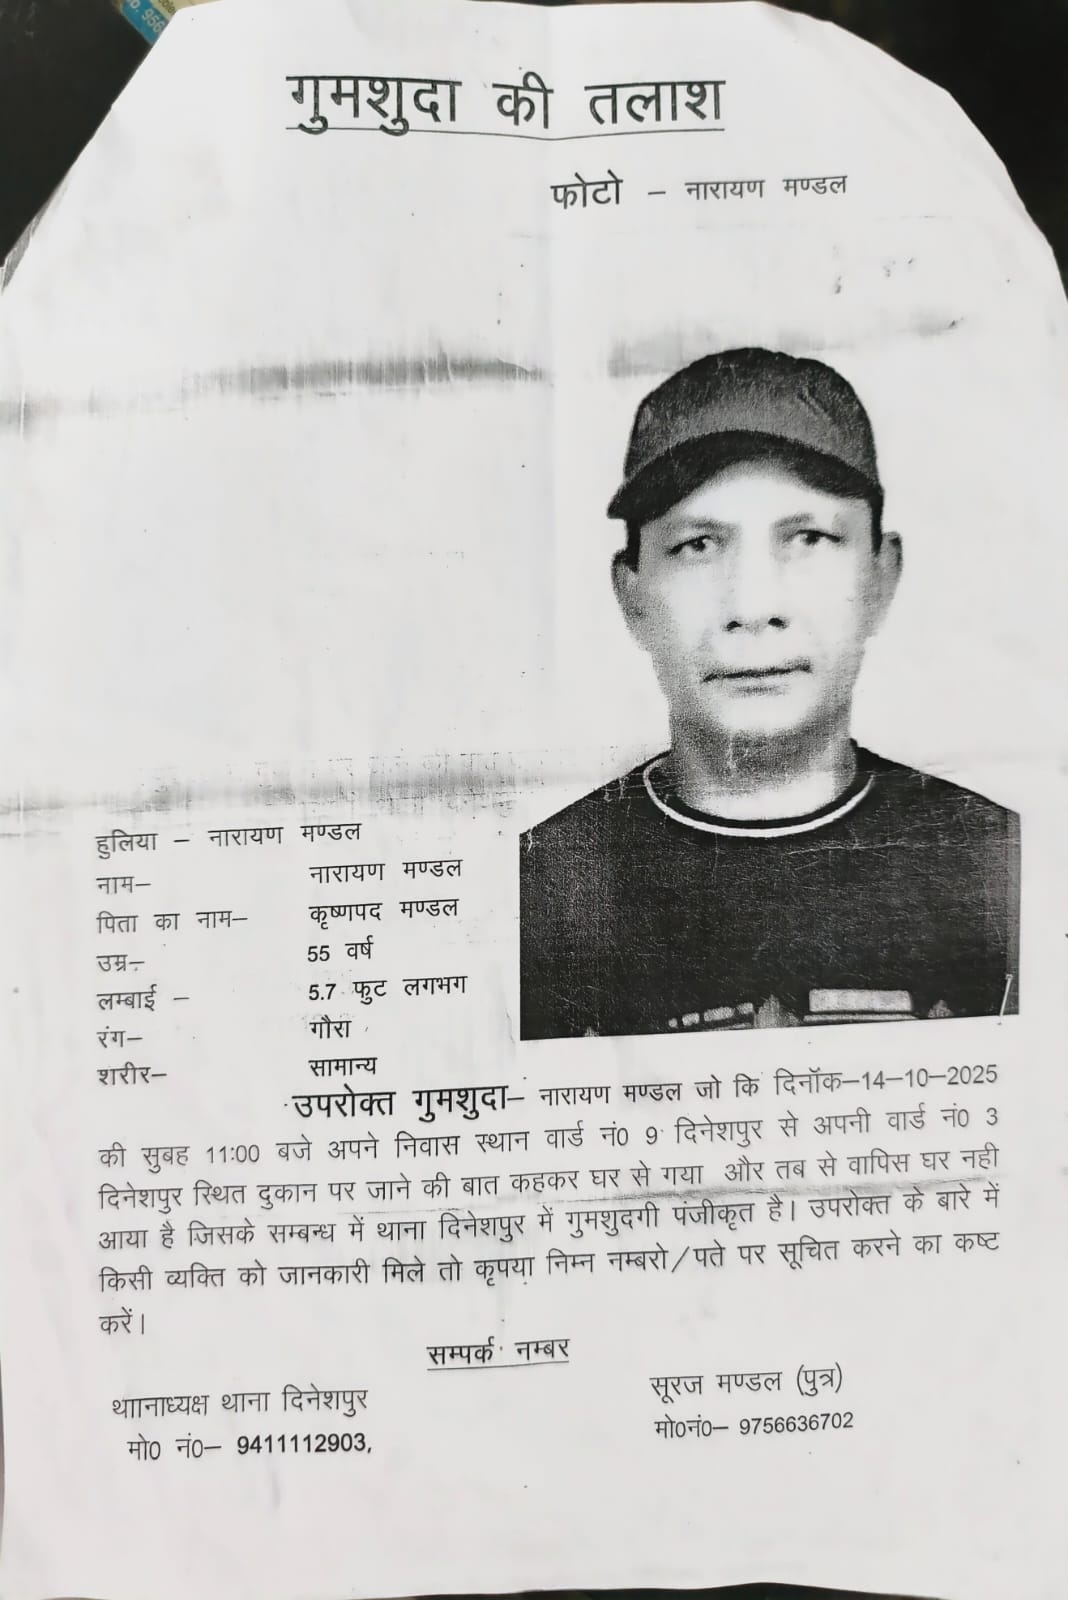 गुमशुदा की तलाश
फोटो – नारायण मण्डल
हुलिया – नारायण मण्डल
नाम– नारायण मण्डल
पिता का नाम– कृष्णपद मण्डल
उम्र– 55 वर्ष
लम्बाई – 5.7 फुट लगभग
रंग– गौरा
शरीर– सामान्य
उपरोक्त गुमशुदा– नारायण मण्डल जो कि दिनॉक–14–10–2025
की सुबह 11:00 बजे अपने निवास स्थान वार्ड नं0 9 दिनेशपुर से अपनी वार्ड नं0 3
दिनेशपुर स्थित दुकान पर जाने की बात कहकर घर से गया और तब से वापिस घर नही
आया है जिसके सम्बन्ध में थाना दिनेशपुर में गुमशुदगी पंजीकृत है। उपरोक्त के बारे में
किसी व्यक्ति को जानकारी मिले तो कृपया निम्न नम्बरो/पते पर सूचित करने का कष्ट
करें।
सम्पर्क नम्बर
थाानाध्यक्ष थाना दिनेशपुर
मो0 नं0– 9411112903,
सूरज मण्डल (पुत्र)
मो0नं0– 9756636702